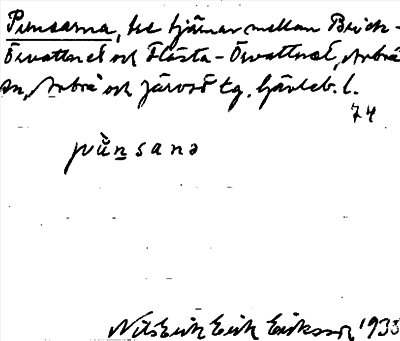 Punsarna, tre tjärnar mellan Björk-
Övattnet och Flåsta-Övattnet, Arbrå
sn, Arbrå och Järvsö tg. Gävleb. l.
74
pùn̲sanə
Nils Erik Erik Eriksson 1933